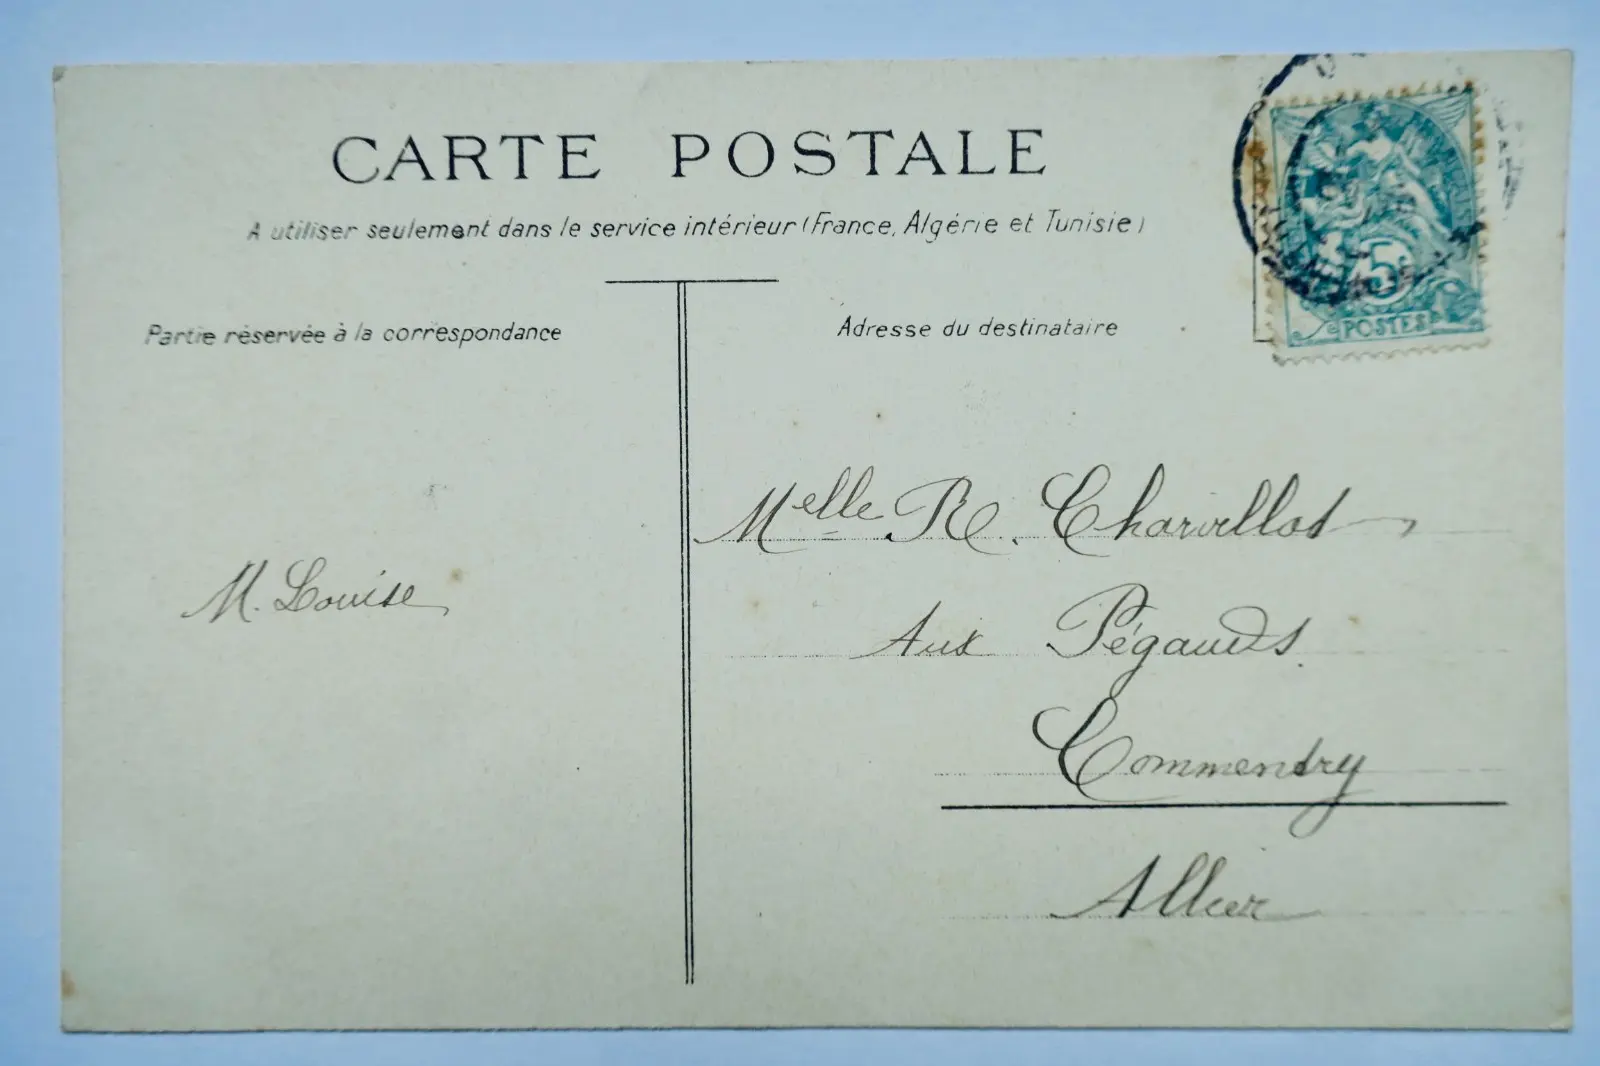 CARTE POSTALE
A utiliser seulement dans le service intérieur (France, Algérie et Tunisie)
Partie réservée à la correspondance
Adresse du destinataire
5
POSTES
Melle R. Charvillat
Aux Pégauds.
Commentry
Allier
M. Louise